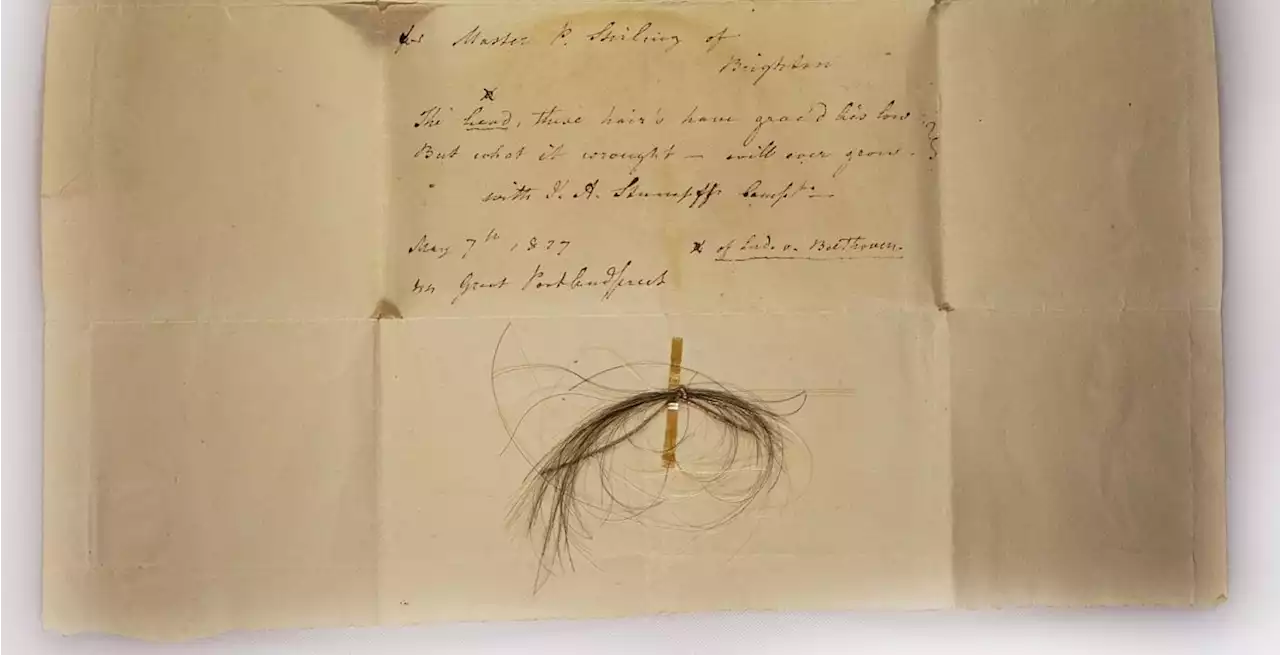 for Master P. Stirling of
Brighton
The head, these hair's have grac'd lies low
But what it wrought – will ever grow.
with J. A. Stumpff's Compts –
May 7th 1827
44 Great Portlandstreet
x of Lud. v. Beethoven.